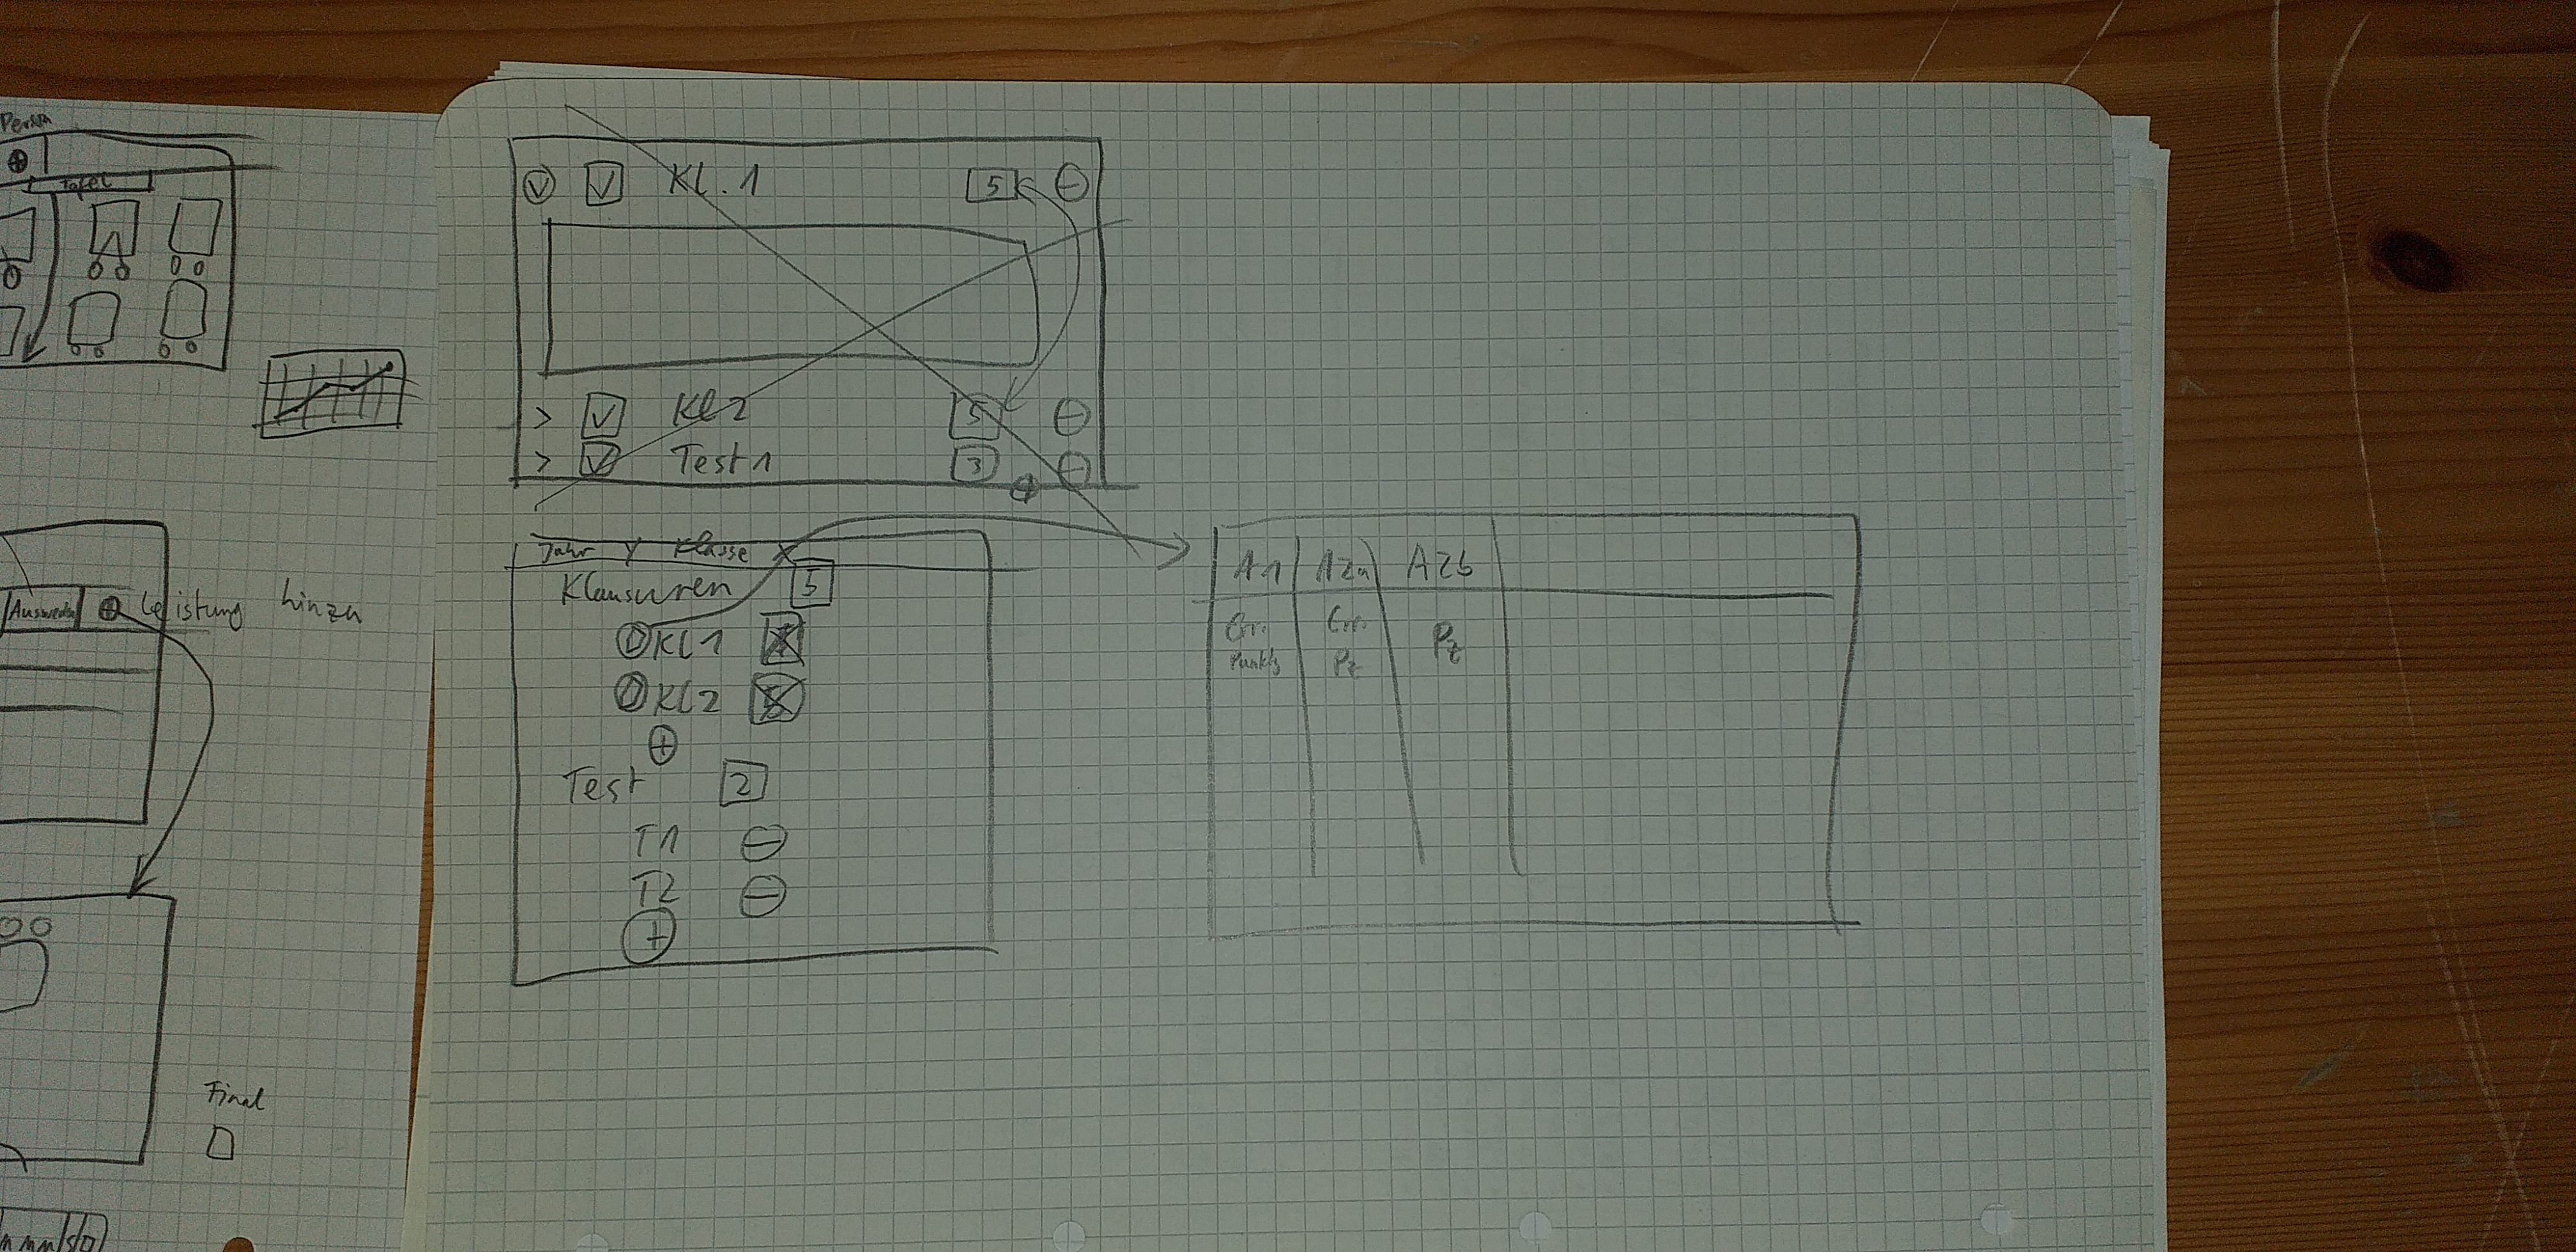 Person
Tafel
Leistung hinzu
Final
Kl. 1 5
Kl 2 5
Test 1 3
Jahr Klasse
Klausuren 5
KL 1
KL 2
Test 2
T1
T2
A1 A2a A2b
Err. Err. Pz
Punkte Pz